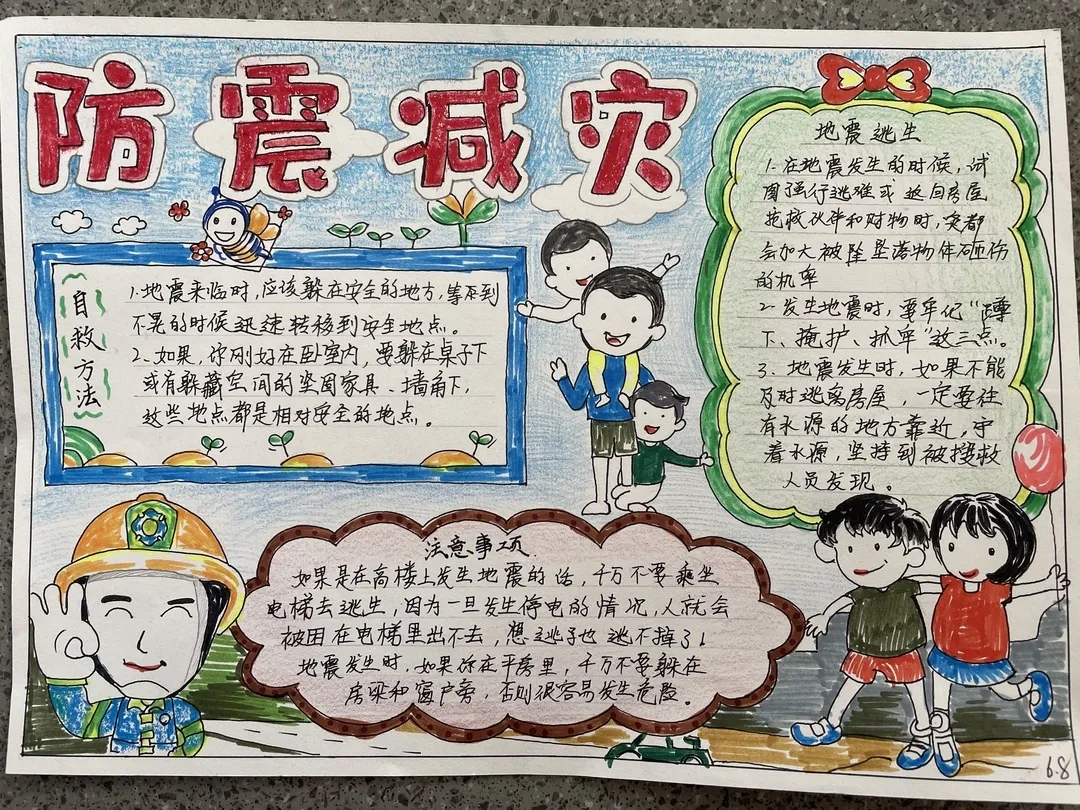 防震减灾
自救方法
1.地震来临时,应该躲在安全的地方,等不到
不晃的时候迅速转移到安全地点。
2.如果,你刚好在卧室内,要躲在桌子下
或有躲藏空间的坚固家具、墙角下,
这些地点都是相对安全的地点。
地震逃生
1.在地震发生的时候,试
图强行逃难或返回房屋
抢救伙伴和财物时,突都
会加大被坠落物体砸伤
的机率
2.发生地震时,要牢记“蹲
下、掩护、抓牢”这三点。
3.地震发生时,如果不能
及时逃离房屋,一定要往
有水源的地方靠近,守
着水源,坚持到被搜救
人员发现。
注意事项
如果是在高楼上发生地震的话,千万不要乘坐
电梯去逃生,因为一旦发生停电的情况,人就会
被困在电梯里出不去,想逃也逃不掉了!
地震发生时,如果你在平房里,千万不要躲在
房梁和窗户旁,否则很容易发生危险。
6.8